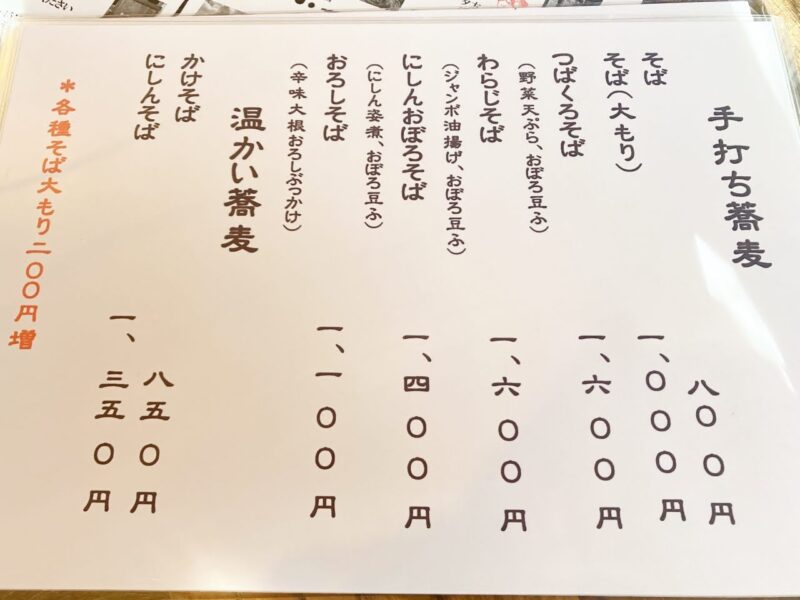 手打ち蕎麦
そば
八〇〇円
そば(大もり)
一、〇〇〇円
つばくろそば
(野菜天ぷら、おぼろ豆ふ)
一、六〇〇円
わらじそば
(ジャンボ油揚げ、おぼろ豆ふ)
一、六〇〇円
にしんおぼろそば
(にしん姿煮、おぼろ豆ふ)
一、四〇〇円
おろしそば
(辛味大根おろしぶっかけ)
一、一〇〇円
温かい蕎麦
かけそば
八五〇円
にしんそば
一、三五〇円
*各種そば大もり二〇〇円増